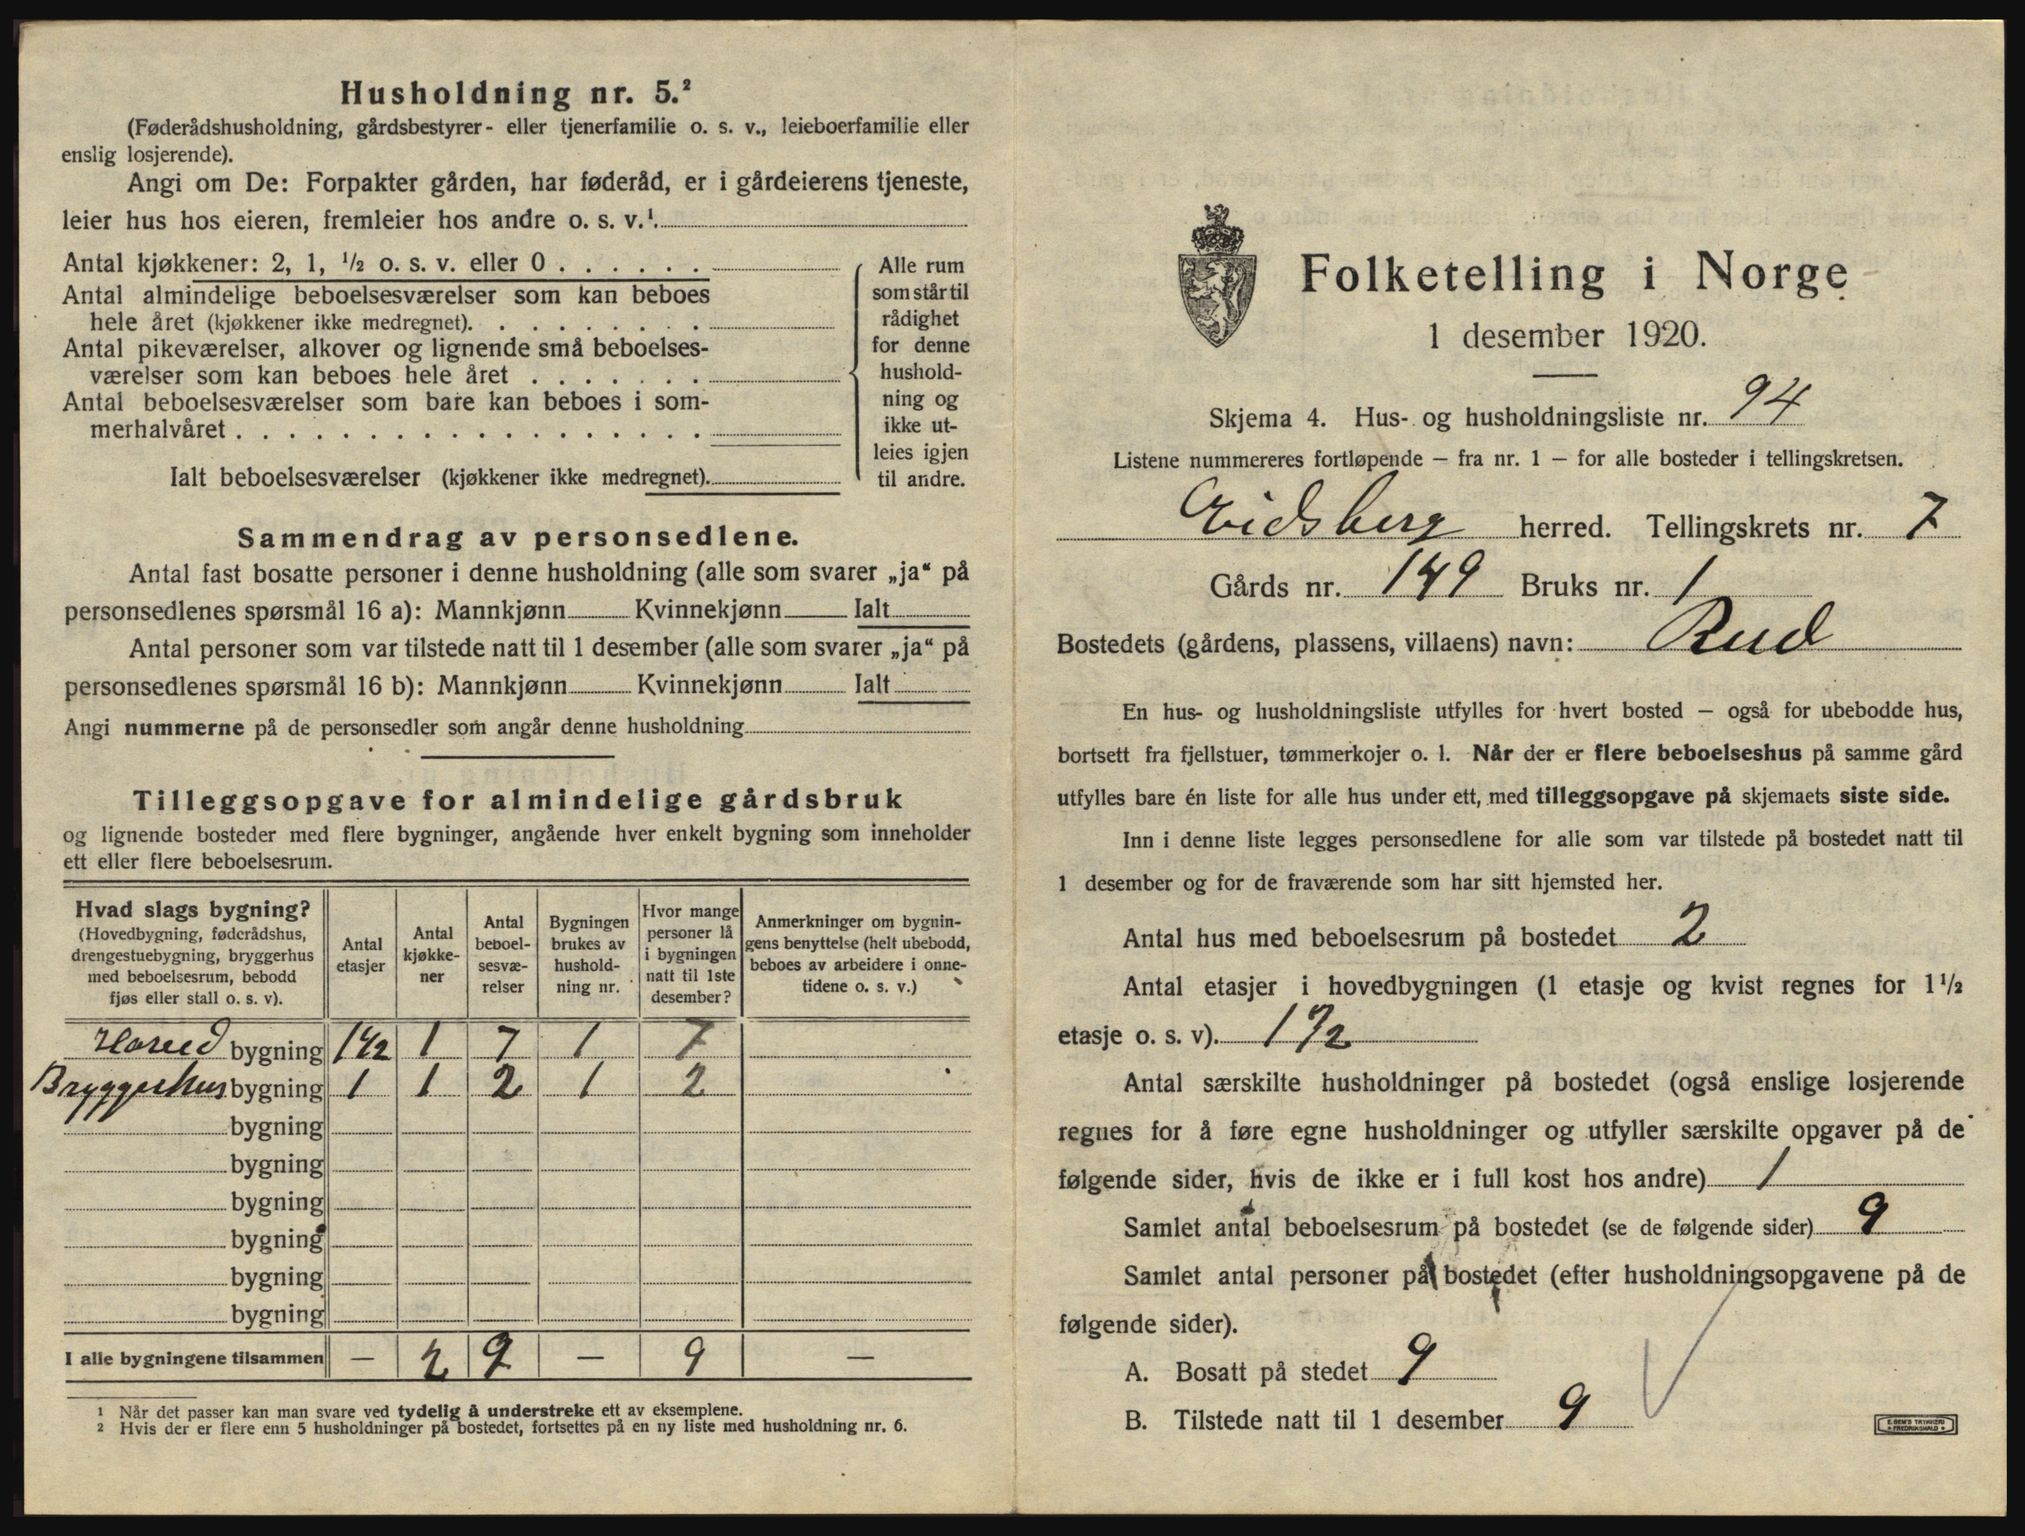 Husholdning nr. 5.²
(Føderådshusholdning, gårdsbestyrer- eller tjenerfamilie o. s. v., leieboerfamilie eller
enslig losjerende).
Angi om De: Forpakter gården, har føderåd, er i gårdeierens tjeneste,
leier hus hos eieren, fremleier hos andre o. s. v.¹
Antal kjøkkener: 2, 1, ½ o. s. v. eller 0 . . . . . .
Antal almindelige beboelsesværelser som kan beboes
hele året (kjøkkener ikke medregnet). . . . . . . . .
Antal pikeværelser, alkover og lignende små beboelses-
værelser som kan beboes hele året . . . . . . .
Antal beboelsesværelser som bare kan beboes i som-
merhalvåret . . . . . . . . . . . . . . . . . .
Ialt beboelsesværelser (kjøkkener ikke medregnet).
Alle rum
som står til
rådighet
for denne
hushold-
ning og
ikke ut-
leies igjen
til andre.
Sammendrag av personsedlene.
Antal fast bosatte personer i denne husholdning (alle som svarer „ja“ på
personsedlenes spørsmål 16 a): Mannkjønn Kvinnekjønn Ialt
Antal personer som var tilstede natt til 1 desember (alle som svarer „ja“ på
personsedlenes spørsmål 16 b): Mannkjønn Kvinnekjønn Ialt
Angi nummerne på de personsedler som angår denne husholdning
Tilleggsopgave for almindelige gårdsbruk
og lignende bosteder med flere bygninger, angående hver enkelt bygning som inneholder
ett eller flere beboelsesrum.
Hvad slags bygning?
(Hovedbygning, føderådshus,
drengestuebygning, bryggerhus
med beboelsesrum, bebodd
fjøs eller stall o. s. v).
Antal
etasjer
Antal
kjøkke-
ner
Antal
beboel-
sesvæ-
relser
Bygningen
brukes av
hushold-
ning nr.
Hvor mange
personer lå
i bygningen
natt til 1ste
desember?
Anmerkninger om bygnin-
gens benyttelse (helt ubebodd,
beboes av arbeidere i onne-
tidene o. s. v.)
Hoved bygning 1½ 1 7 1 7
Bryggerhus bygning 1 1 2 1 2
bygning
bygning
bygning
bygning
bygning
bygning
I alle bygningene tilsammen — 2 9 — 9 —
¹ Når det passer kan man svare ved tydelig å understreke ett av eksemplene.
² Hvis der er flere enn 5 husholdninger på bostedet, fortsettes på en ny liste med husholdning nr. 6.
Folketelling i Norge
1 desember 1920.
Skjema 4. Hus- og husholdningsliste nr. 94
Listene nummereres fortløpende — fra nr. 1 — for alle bosteder i tellingskretsen.
Eidsberg herred. Tellingskrets nr. 7
Gårds nr. 149 Bruks nr. 1
Bostedets (gårdens, plassens, villaens) navn: Rud
En hus- og husholdningsliste utfylles for hvert bosted — også for ubebodde hus,
bortsett fra fjellstuer, tømmerkojer o. l. Når der er flere beboelseshus på samme gård
utfylles bare én liste for alle hus under ett, med tilleggsopgave på skjemaets siste side.
Inn i denne liste legges personsedlene for alle som var tilstede på bostedet natt til
1 desember og for de fraværende som har sitt hjemsted her.
Antal hus med beboelsesrum på bostedet 2
Antal etasjer i hovedbygningen (1 etasje og kvist regnes for 1½
etasje o. s. v). 1½
Antal særskilte husholdninger på bostedet (også enslige losjerende
regnes for å føre egne husholdninger og utfyller særskilte opgaver på de
følgende sider, hvis de ikke er i full kost hos andre) 1
Samlet antal beboelsesrum på bostedet (se de følgende sider) 9
Samlet antal personer på bostedet (efter husholdningsopgavene på de
følgende sider).
A. Bosatt på stedet 9
B. Tilstede natt til 1 desember 9
E. SEM'S TRYKKERI
FREDRIKSHALD